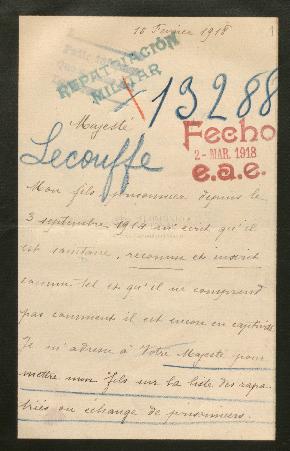 10 Février 1918
1
REPATRIACIÓN
MILITAR
13288
Majesté
Fecho
2-MAR. 1918
e.a.e.
Lecouffe
Mon fils prisonnier depuis le
3 septembre 1914 m'écrit qu'il
est sanitaire, reconnu et inscrit
comme tel et qu'il ne comprend
pas comment il est encore en captivité
Je m'adresse à Votre Majesté pour
mettre mon fils sur la liste des rapa-
triés ou échange de prisonniers.